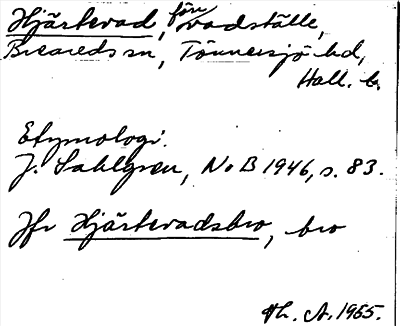 Hjärtevad, förr vadställe,
Breareds sn, Tönnersjö hd,
Hall. l.
Etymologi.
J. Sahlgren, NoB 1946, s. 83.
Jfr Hjärtevadsbro, bro
Th. A. 1965.